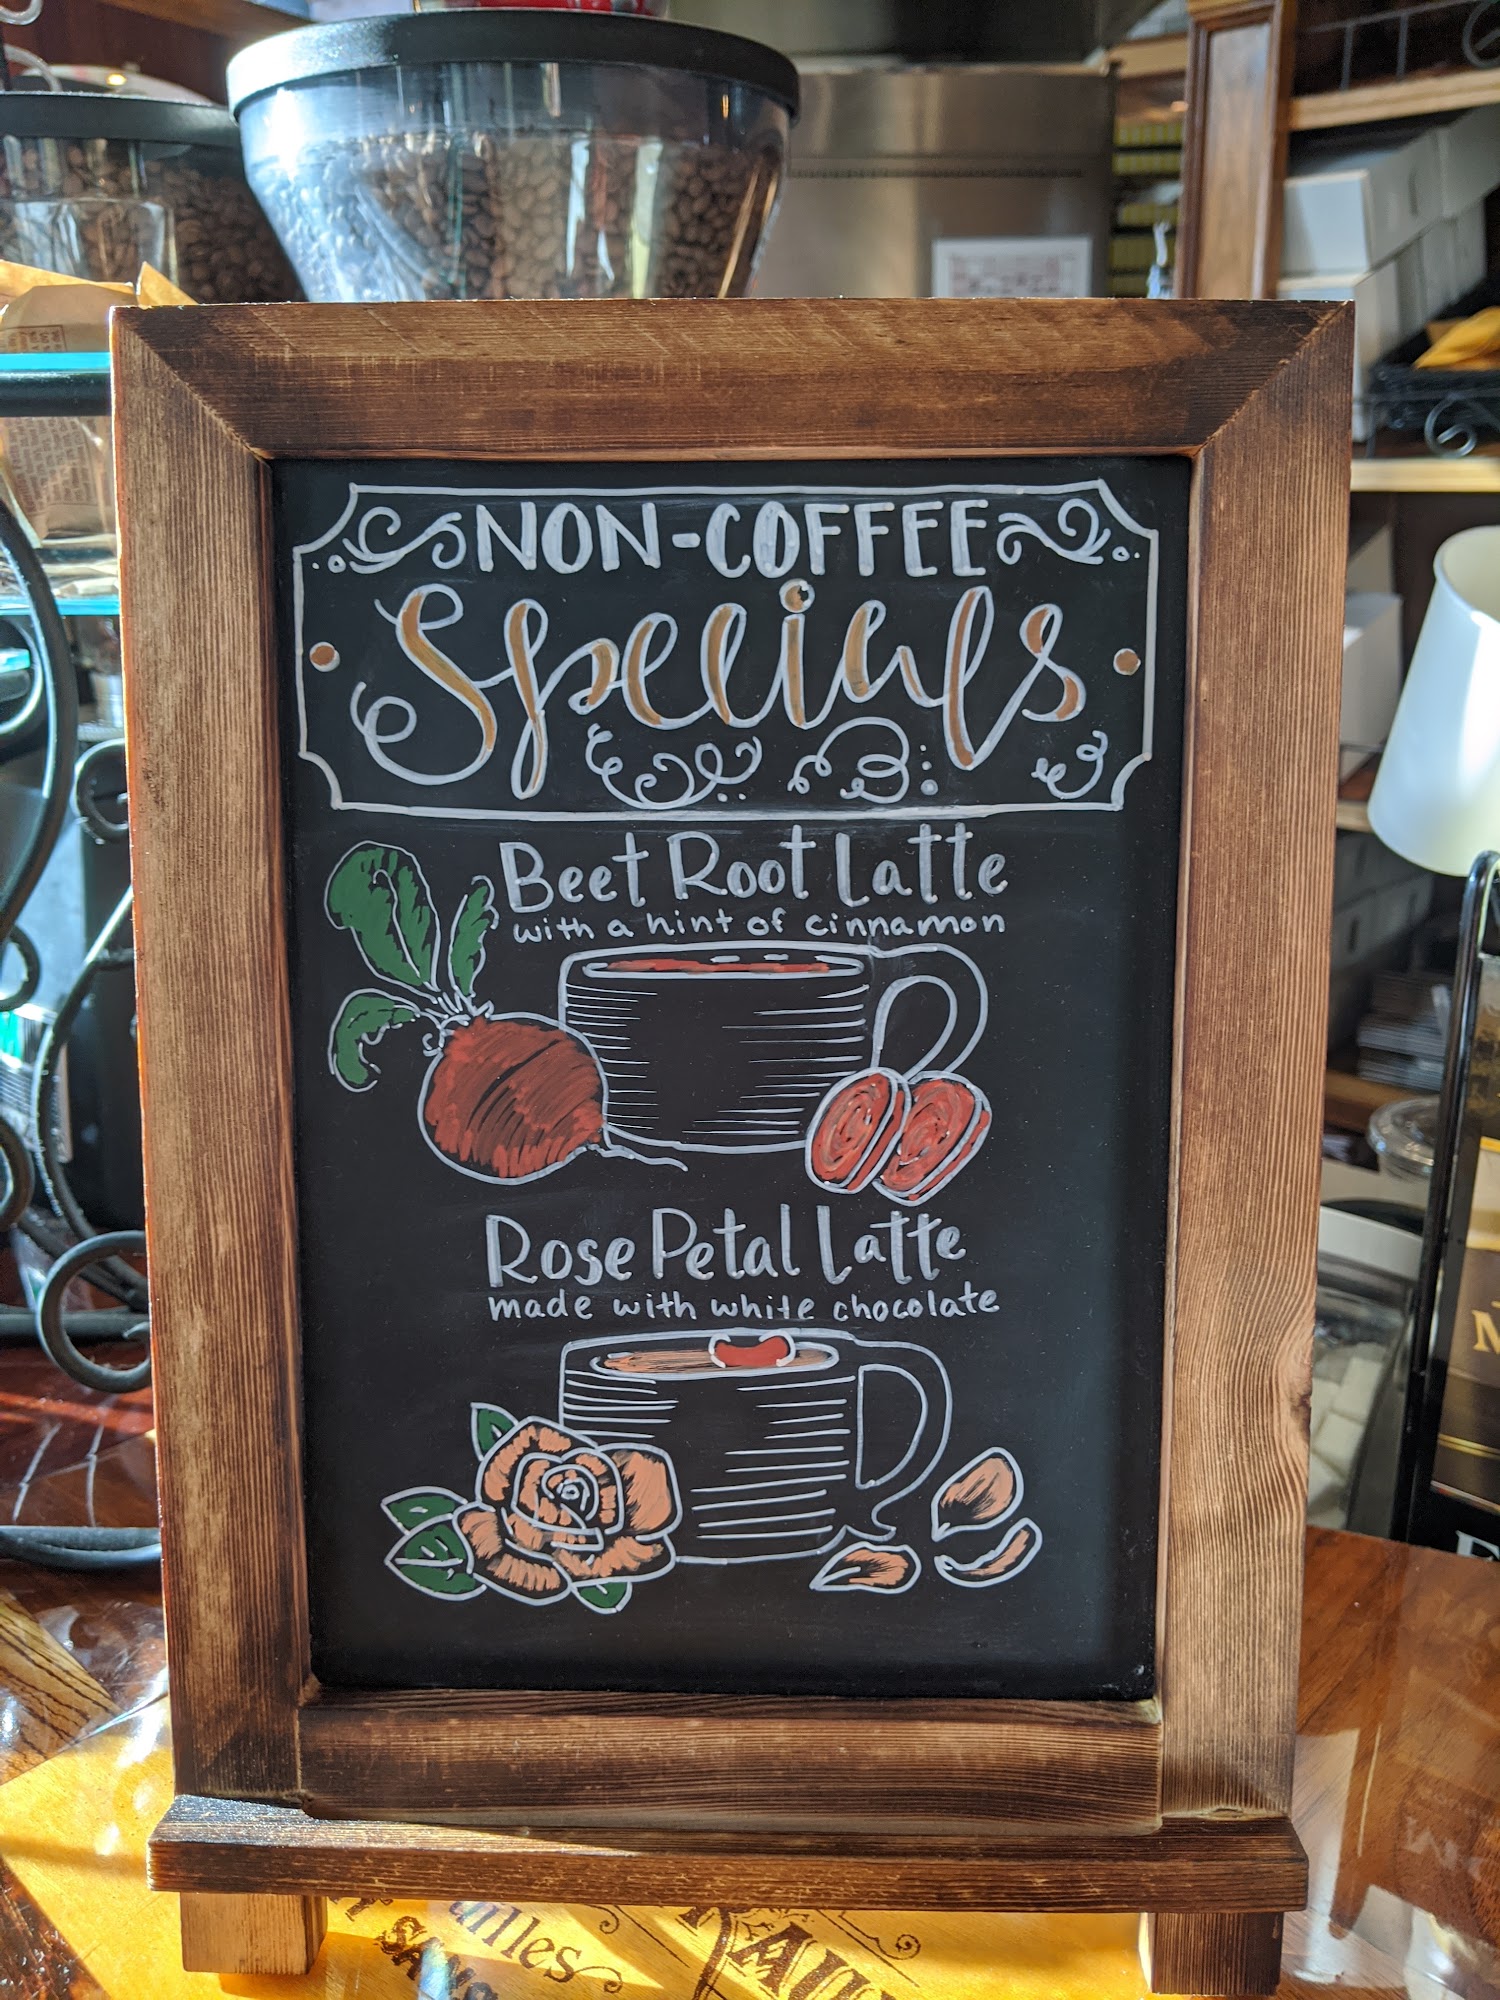 NON-COFFEE
Specials
Beet Root Latte
with a hint of cinnamon
Rose Petal Latte
made with white chocolate